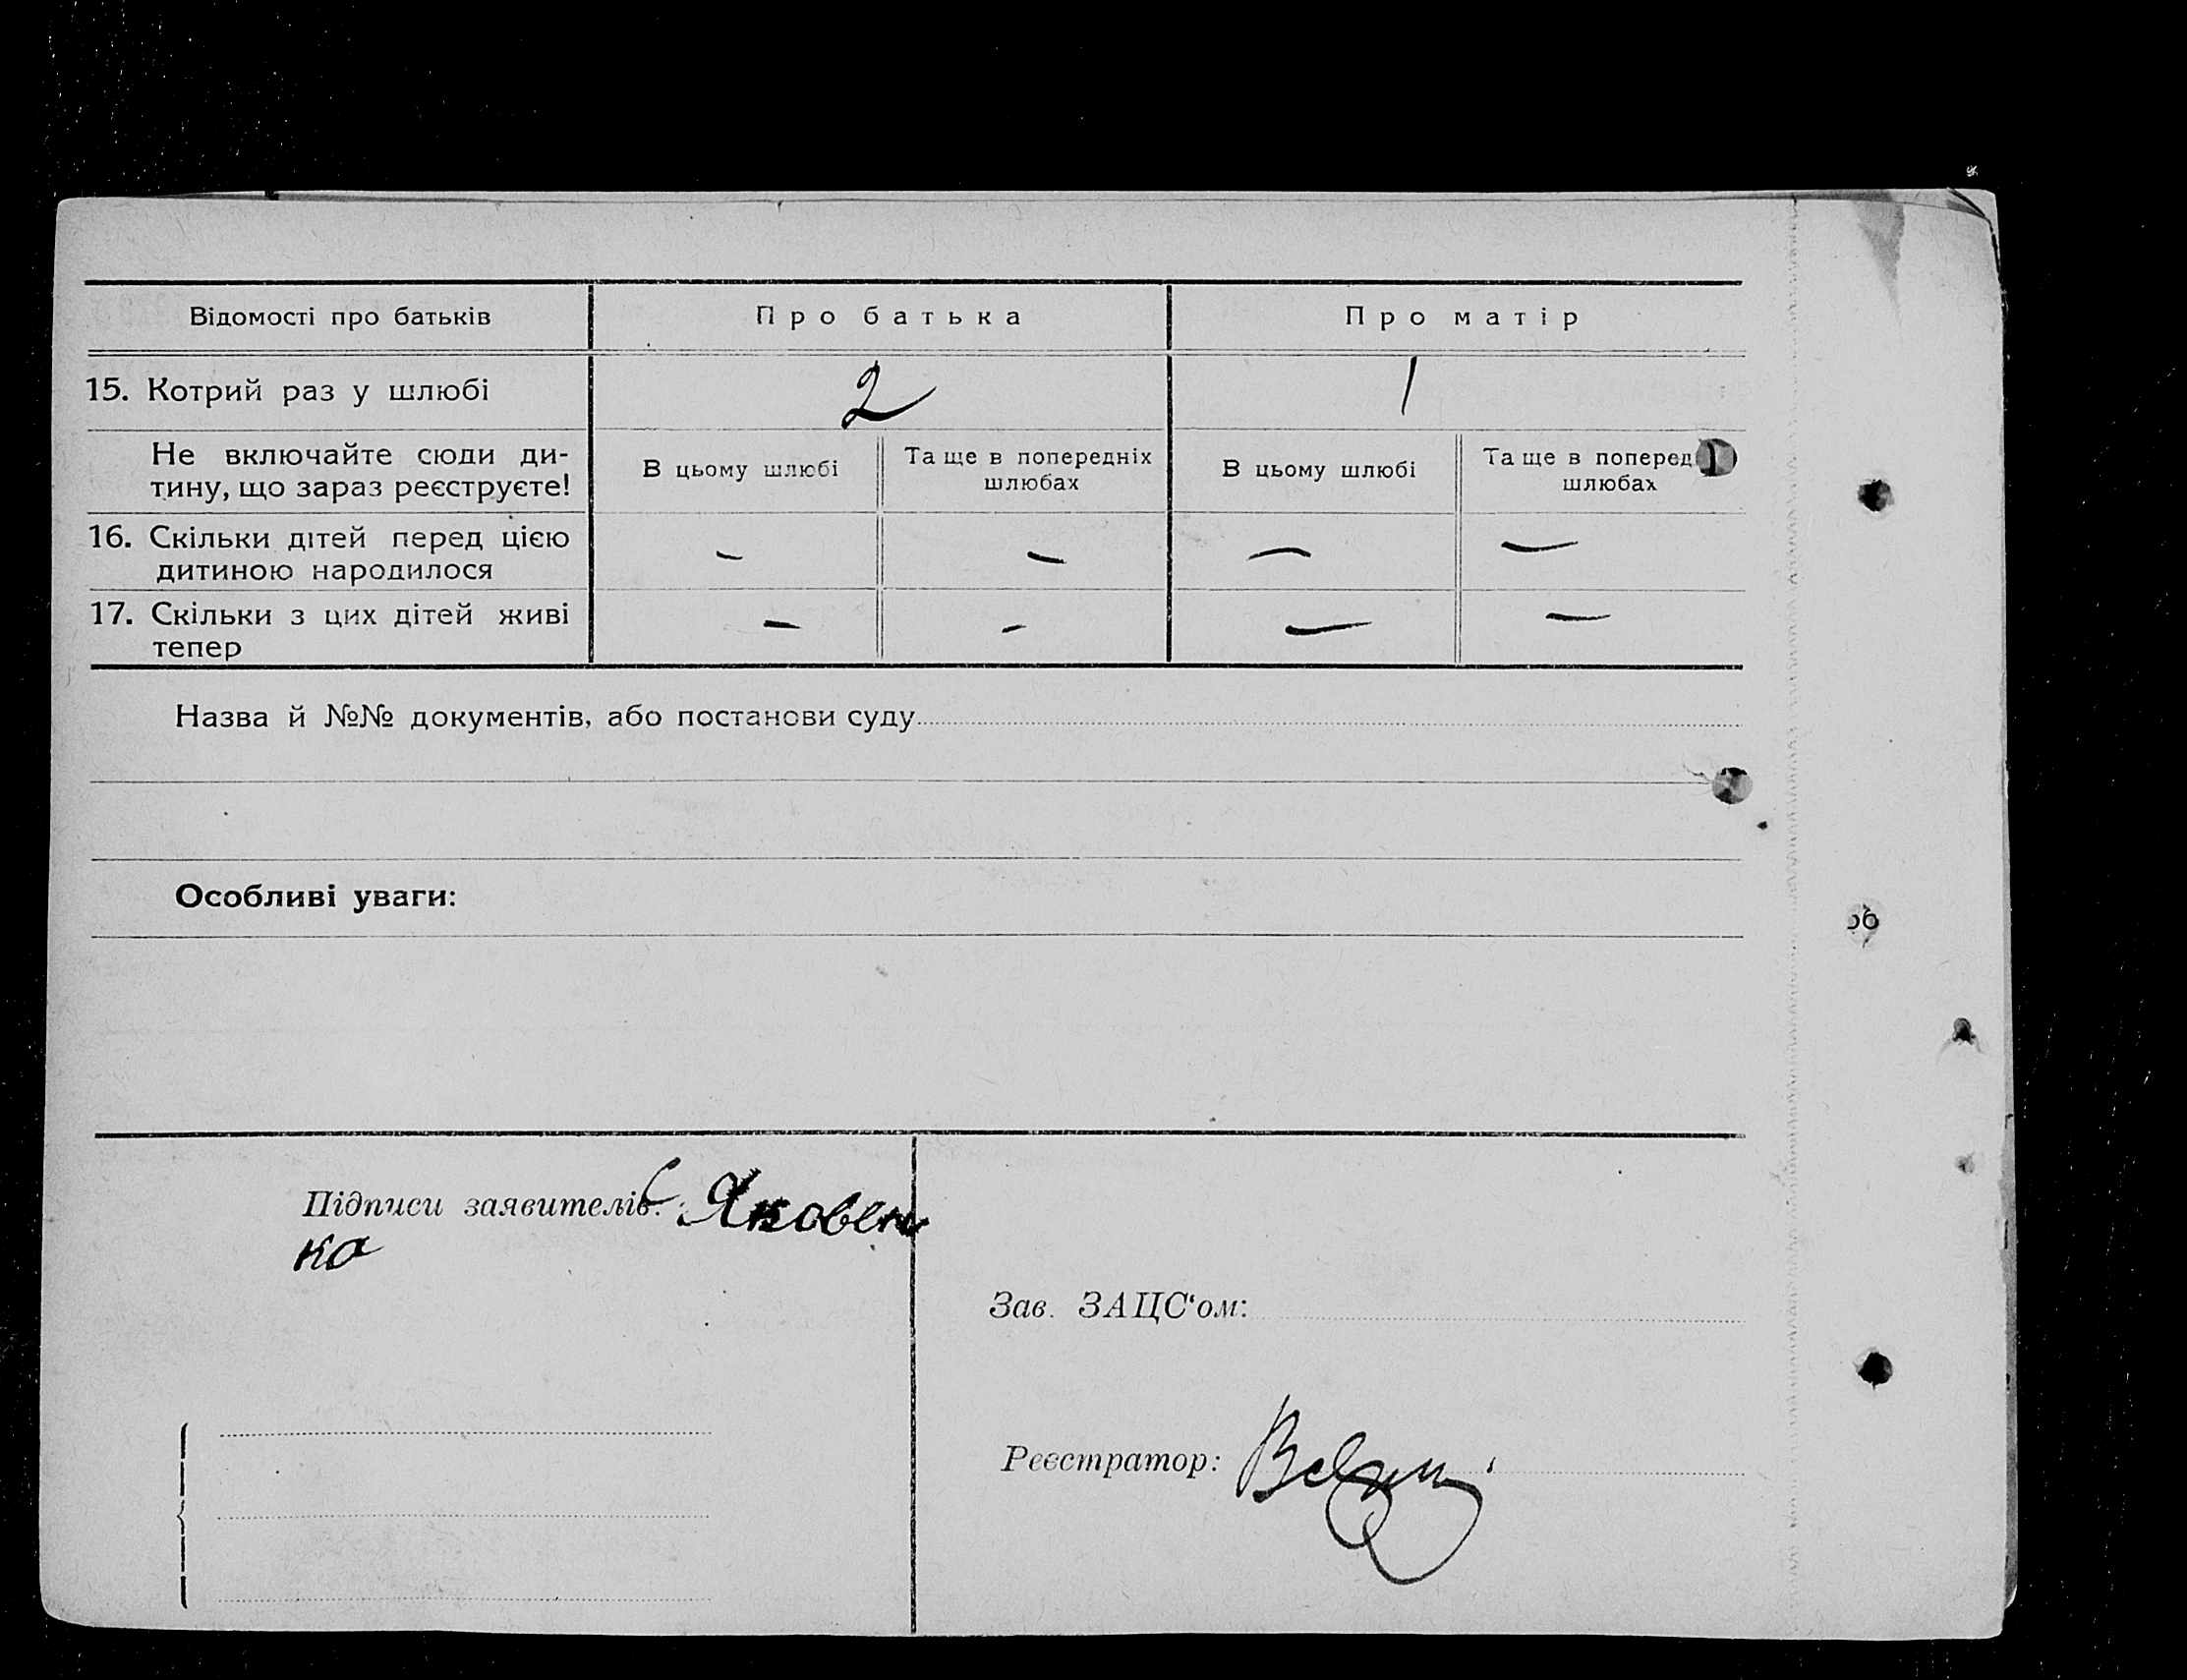 Відомості про батьків
Про батька
Про матір
15. Котрий раз у шлюбі
2
1
Не включайте сюди ди-
тину, що зараз реєструєте!
В цьому шлюбі
Та ще в попередніх
шлюбах
В цьому шлюбі
Та ще в поперед
шлюбах
16. Скільки дітей перед цією
дитиною народилося
— — — —
17. Скільки з цих дітей живі
тепер
— — — —
Назва й №№ документів, або постанови суду
Особливі уваги:
об
Підписи заявителів: Яковен
ко
Зав. ЗАЦС‘ом:
Реєстратор: